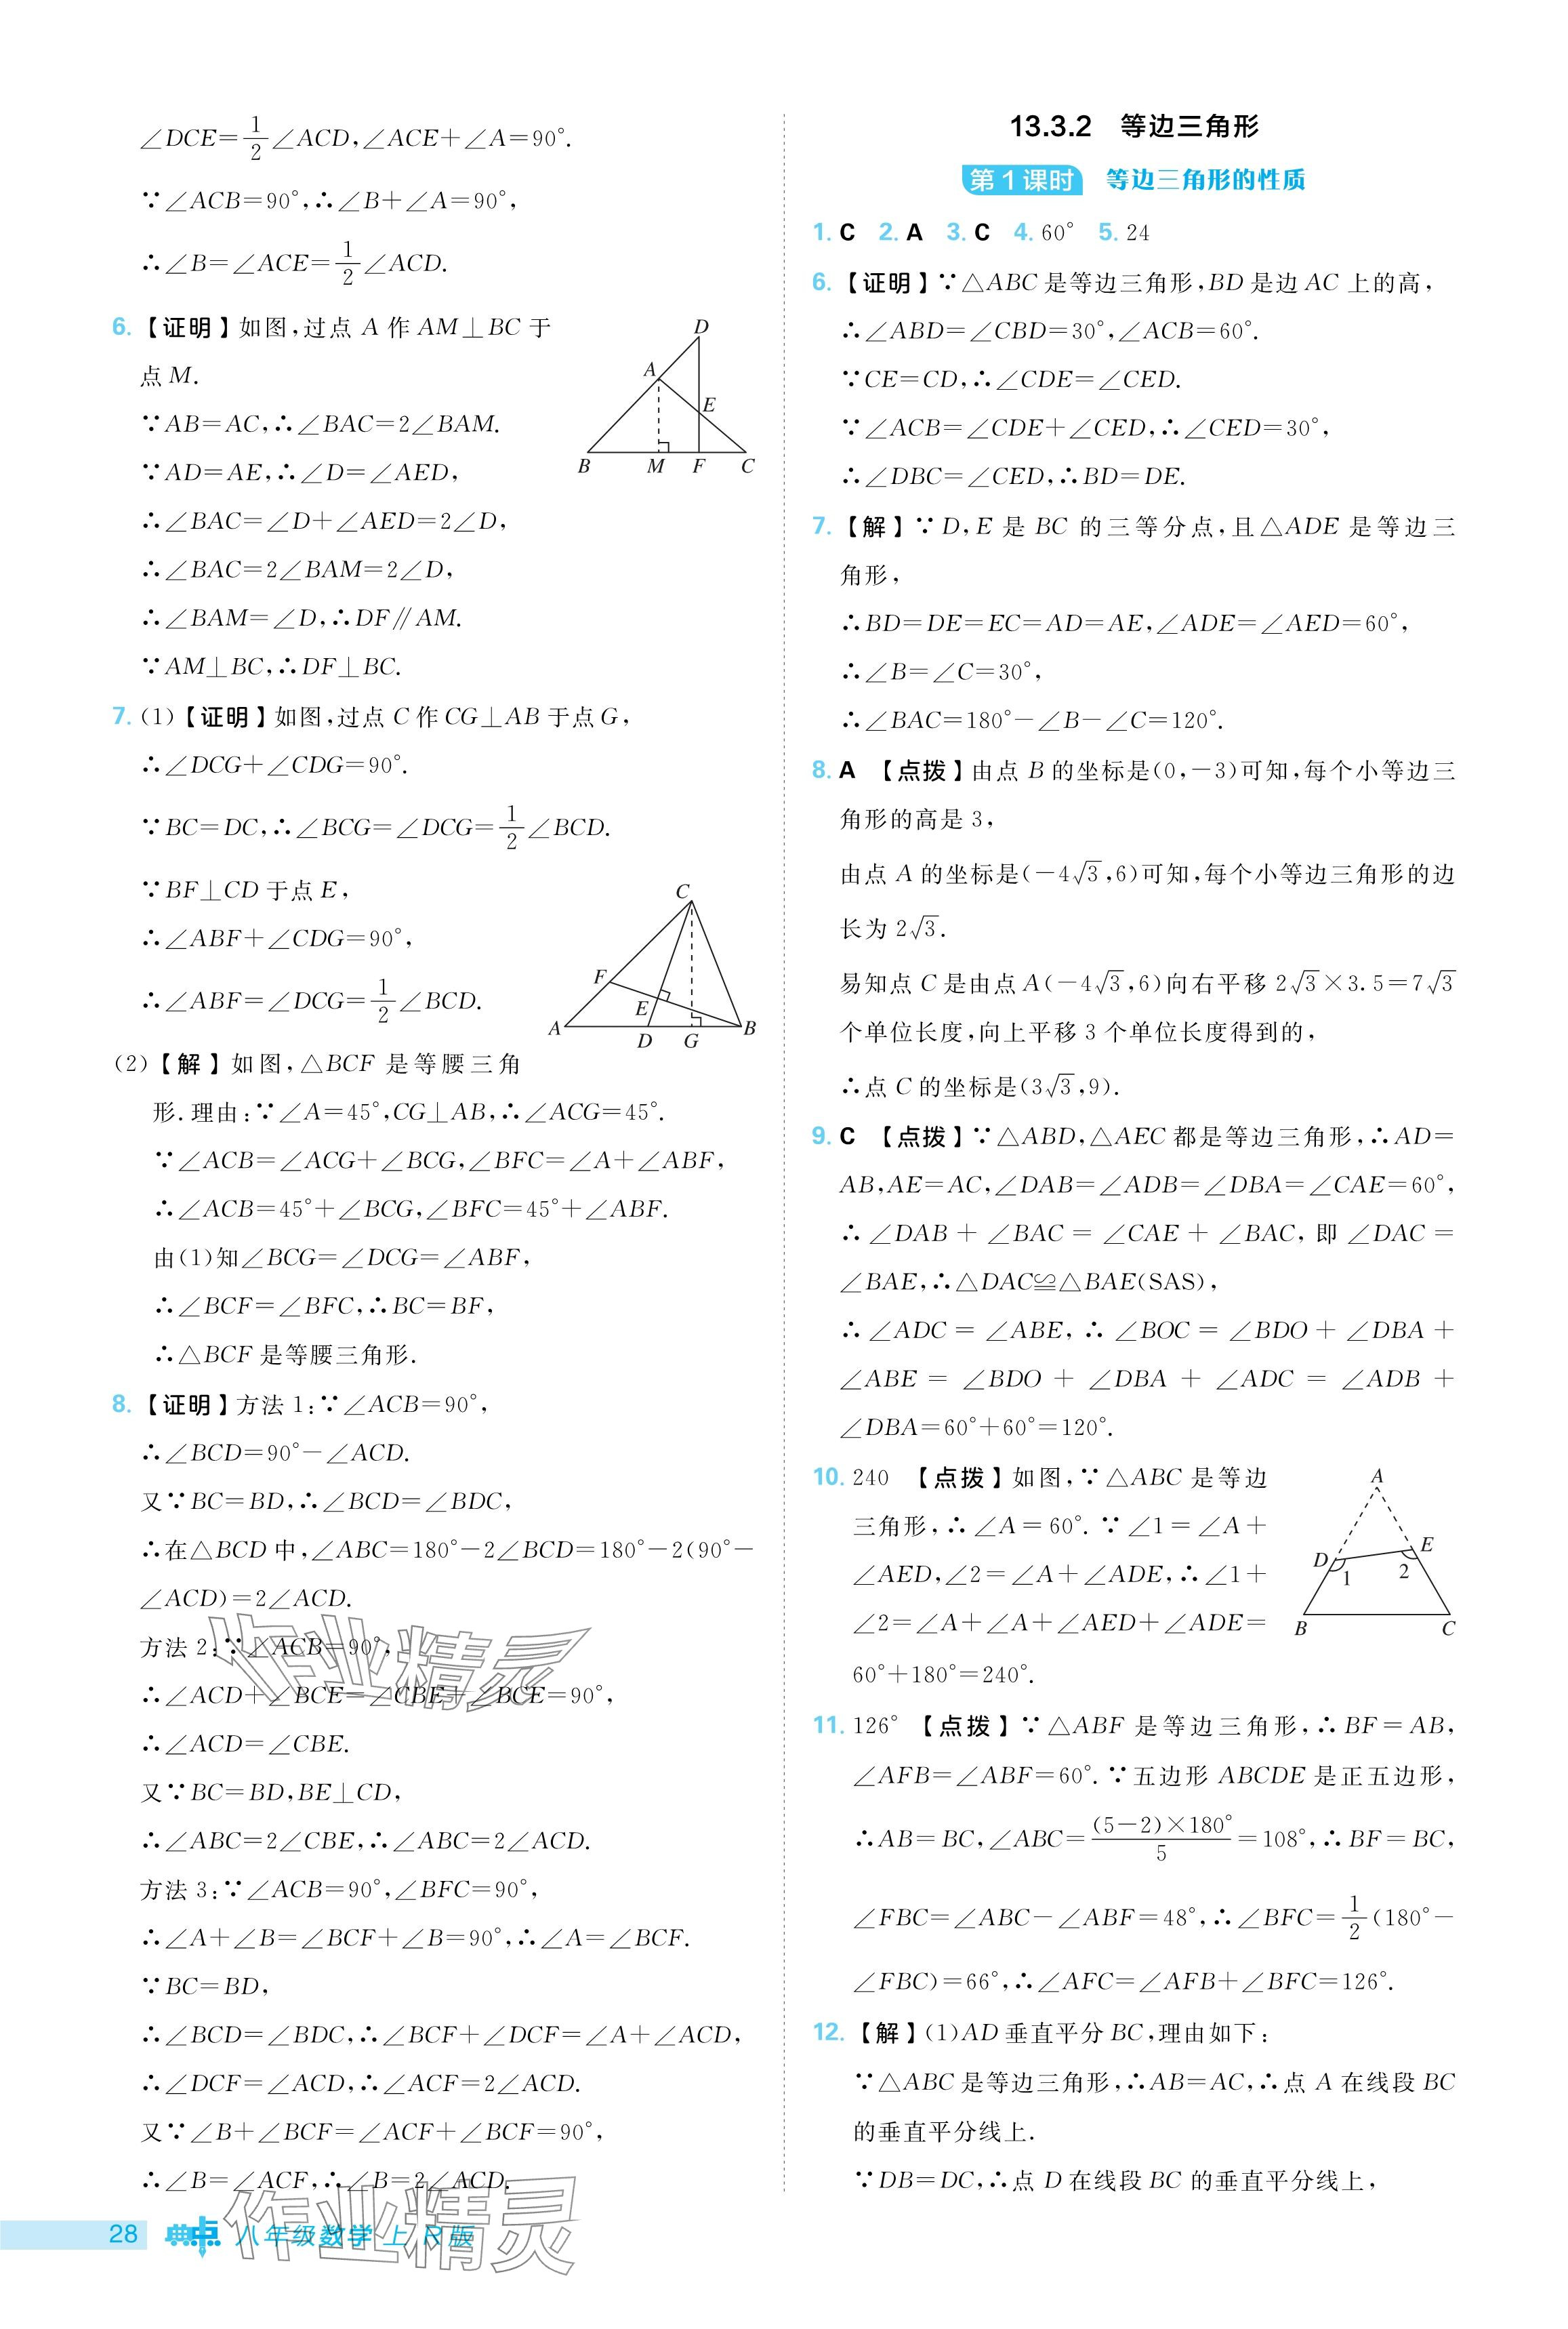 ∠DCE=1/2∠ACD,∠ACE+∠A=90°.
∵∠ACB=90°,∴∠B+∠A=90°,
∴∠B=∠ACE=1/2∠ACD.
6.【证明】如图,过点 A 作 AM⊥BC 于
点 M.
∵AB=AC,∴∠BAC=2∠BAM.
∵AD=AE,∴∠D=∠AED,
∴∠BAC=∠D+∠AED=2∠D,
∴∠BAC=2∠BAM=2∠D,
∴∠BAM=∠D,∴DF∥AM.
∵AM⊥BC,∴DF⊥BC.
D
A
E
B M F C
7.(1)【证明】如图,过点 C 作 CG⊥AB 于点 G,
∴∠DCG+∠CDG=90°.
∵BC=DC,∴∠BCG=∠DCG=1/2∠BCD.
∵BF⊥CD 于点 E,
∴∠ABF+∠CDG=90°,
∴∠ABF=∠DCG=1/2∠BCD.
C
F
E
A D G B
(2)【解】如图,△BCF 是等腰三角
形.理由:∵∠A=45°,CG⊥AB,∴∠ACG=45°.
∵∠ACB=∠ACG+∠BCG,∠BFC=∠A+∠ABF,
∴∠ACB=45°+∠BCG,∠BFC=45°+∠ABF.
由(1)知∠BCG=∠DCG=∠ABF,
∴∠BCF=∠BFC,∴BC=BF,
∴△BCF 是等腰三角形.
8.【证明】方法 1:∵∠ACB=90°,
∴∠BCD=90°-∠ACD.
又∵BC=BD,∴∠BCD=∠BDC,
∴在△BCD 中,∠ABC=180°-2∠BCD=180°-2(90°-
∠ACD)=2∠ACD.
方法 2:∵∠ACB=90°,
∴∠ACD+∠BCE=∠CBE+∠BCE=90°,
∴∠ACD=∠CBE.
又∵BC=BD,BE⊥CD,
∴∠ABC=2∠CBE,∴∠ABC=2∠ACD.
方法 3:∵∠ACB=90°,∠BFC=90°,
∴∠A+∠B=∠BCF+∠B=90°,∴∠A=∠BCF.
∵BC=BD,
∴∠BCD=∠BDC,∴∠BCF+∠DCF=∠A+∠ACD,
∴∠DCF=∠ACD,∴∠ACF=2∠ACD.
又∵∠B+∠BCF=∠ACF+∠BCF=90°,
∴∠B=∠ACF,∴∠B=2∠ACD.
作业精灵
作业精灵
28 典中点 八年级数学 上 R版
13.3.2 等边三角形
第1课时 等边三角形的性质
1. C 2. A 3. C 4. 60° 5. 24
6.【证明】∵△ABC 是等边三角形,BD 是边 AC 上的高,
∴∠ABD=∠CBD=30°,∠ACB=60°.
∵CE=CD,∴∠CDE=∠CED.
∵∠ACB=∠CDE+∠CED,∴∠CED=30°,
∴∠DBC=∠CED,∴BD=DE.
7.【解】∵D,E 是 BC 的三等分点,且△ADE 是等边三
角形,
∴BD=DE=EC=AD=AE,∠ADE=∠AED=60°,
∴∠B=∠C=30°,
∴∠BAC=180°-∠B-∠C=120°.
8. A 【点拨】由点 B 的坐标是(0,-3)可知,每个小等边三
角形的高是 3,
由点 A 的坐标是(-4√3,6)可知,每个小等边三角形的边
长为 2√3.
易知点 C 是由点 A(-4√3,6)向右平移 2√3×3.5=7√3
个单位长度,向上平移 3 个单位长度得到的,
∴点 C 的坐标是(3√3,9).
9. C 【点拨】∵△ABD,△AEC 都是等边三角形,∴AD=
AB,AE=AC,∠DAB=∠ADB=∠DBA=∠CAE=60°,
∴∠DAB+∠BAC=∠CAE+∠BAC,即∠DAC=
∠BAE,∴△DAC≌△BAE(SAS),
∴∠ADC=∠ABE,∴∠BOC=∠BDO+∠DBA+
∠ABE=∠BDO+∠DBA+∠ADC=∠ADB+
∠DBA=60°+60°=120°.
10. 240 【点拨】如图,∵△ABC 是等边
三角形,∴∠A=60°.∵∠1=∠A+
∠AED,∠2=∠A+∠ADE,∴∠1+
∠2=∠A+∠A+∠AED+∠ADE=
60°+180°=240°.
A
D E
1 2
B C
11. 126° 【点拨】∵△ABF 是等边三角形,∴BF=AB,
∠AFB=∠ABF=60°.∵五边形 ABCDE 是正五边形,
∴AB=BC,∠ABC=(5-2)×180°/5=108°,∴BF=BC,
∠FBC=∠ABC-∠ABF=48°,∴∠BFC=1/2(180°-
∠FBC)=66°,∴∠AFC=∠AFB+∠BFC=126°.
12.【解】(1)AD 垂直平分 BC,理由如下:
∵△ABC 是等边三角形,∴AB=AC,∴点 A 在线段 BC
的垂直平分线上.
∵DB=DC,∴点 D 在线段 BC 的垂直平分线上,